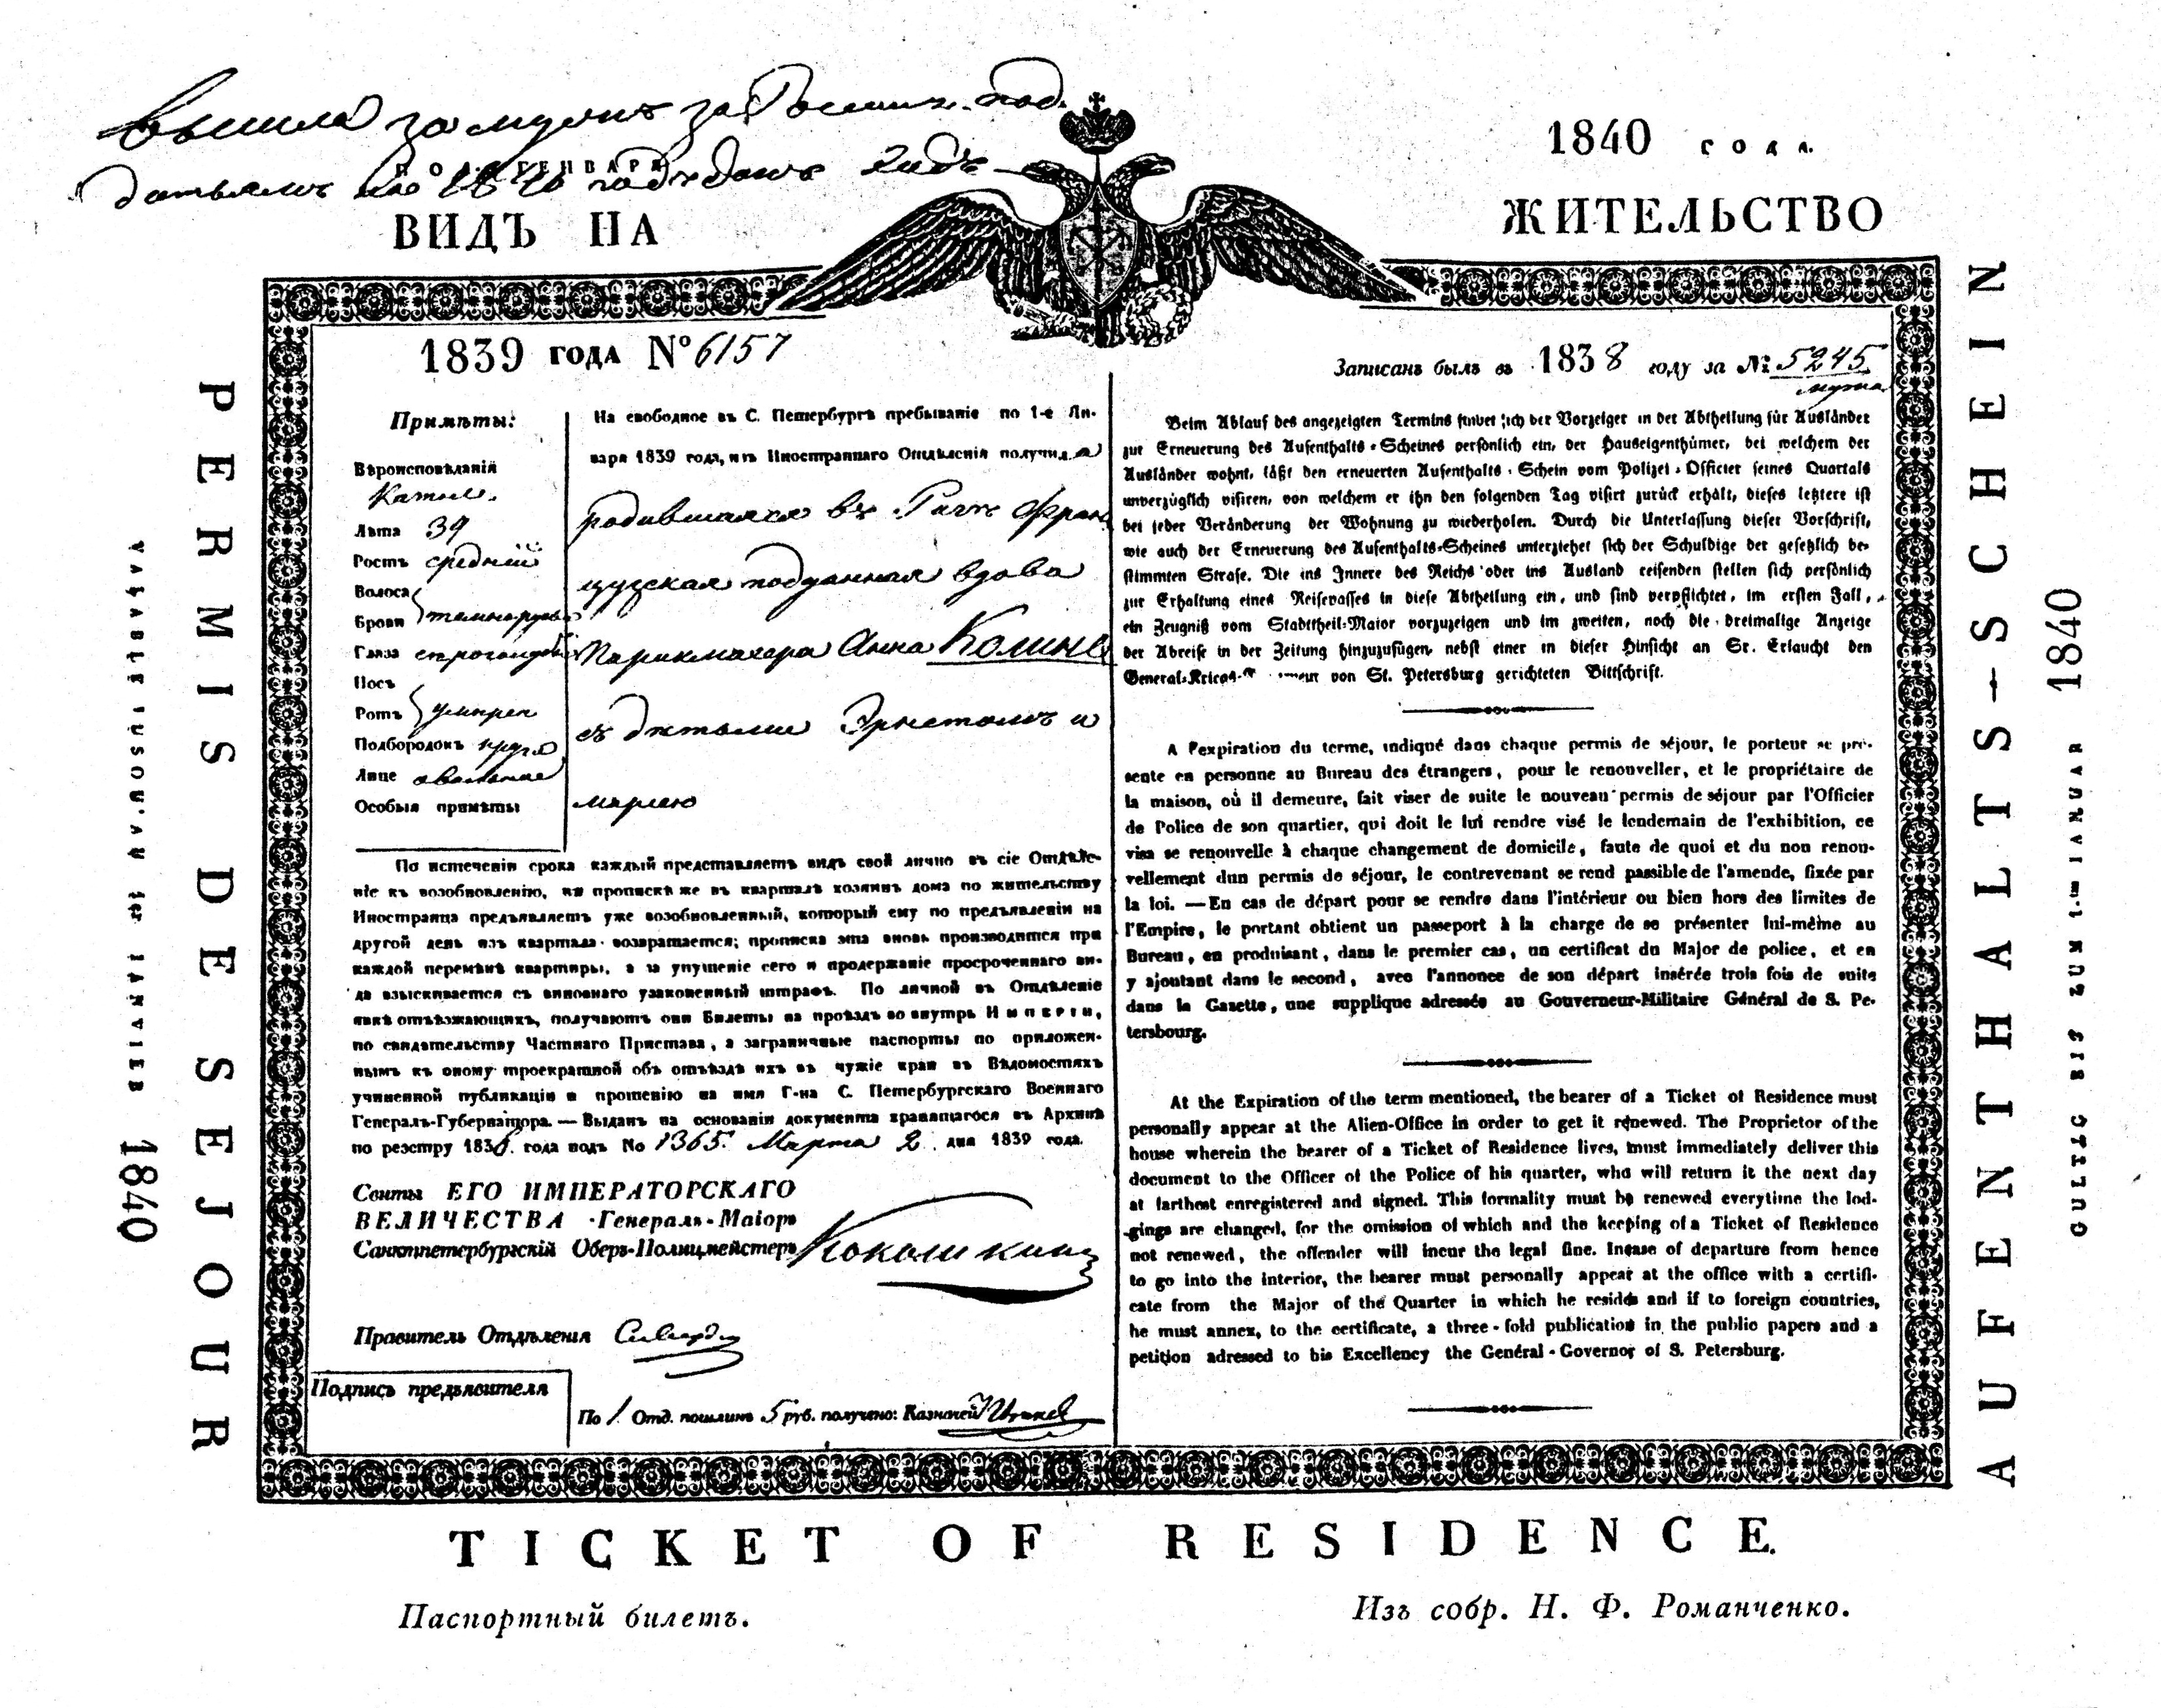 вышла замужъ за Россий. под.
1840 года.
ПО 1 ГЕНВАРЯ
ВИДЪ НА ЖИТЕЛЬСТВО
PERMIS DE SEJOUR
VALABLE JUSQU'AU 1er JANVIER 1840
AUFENTHALTS-SCHEIN
GULTIG BIS ZUM 1.ten IANUAR 1840
1839 года № 6157
Записанъ былъ въ 1838 году за № 5245
мужа
Примѣты:
Вѣроисповѣданія
Катол.
Лѣта 39
Ростъ средній
Волоса
Брови темнорусы
Глаза
Носъ
Ротъ умѣрен
Подбородокъ кругл
Лице овальное
Особыя примѣты
На свободное въ С. Петербургѣ пребываніе по 1-е Ян-
варя 1839 года, изъ Иностраннаго Отдѣленія получила
родившаяся въ Фран
цузская подданная вдова
Парикмахера Анна Колинъ
съ дѣтьми Эрнстомъ и
маріею
По истеченіи срока каждый представляетъ видъ свой лично въ сіе Отдѣле-
ніе къ возобновленію, къ прописке же въ кварталѣ хозяинъ дома по жительству
Иностранца предъявляетъ уже возобновленный, который ему по предъявленіи на
другой день изъ квартала возвращается; прописка эта вновь производится при
каждой перемѣнѣ квартиры, а за упущеніе сего и продержаніе просроченнаго ви-
да взыскивается съ виновнаго узаконенный штрафъ. По личной въ Отдѣленіе
явкѣ отъѣзжающихъ, получаютъ они Билеты на проѣздъ во внутрь Имперіи,
по свидѣтельству Частнаго Пристава, а заграничные паспорты по приложен-
нымъ къ оному троекратной объ отъѣздѣ ихъ въ чужіе края въ Вѣдомостяхъ
учиненной публикаціи и прошенію на имя Г-на С. Петербургскаго Военнаго
Генералъ-Губернатора. — Выданъ на основаніи документа хранящагося въ Архивѣ
по реестру 1838. года подъ No 1365. Марта 2 дня 1839 года.
Свиты ЕГО ИМПЕРАТОРСКАГО
ВЕЛИЧЕСТВА Генералъ-Маіоръ
Санктпетербургскій Оберъ-Полицмейстеръ Кокошкинъ
Правитель Отдѣленія
Подпись предъявителя
По 1 Отд. пошлинъ 5 руб. получено: Казначей
Beim Ablauf des angezeigten Termins findet sich der Vorzeiger in der Abtheilung für Ausländer
zur Erneuerung des Aufenthalts-Scheines persönlich ein, der Hauseigenthümer, bei welchem der
Ausländer wohnt, läßt den erneuerten Aufenthalts-Schein vom Polizei-Officier seines Quartals
unverzüglich visiren, von welchem er ihn den folgenden Tag visirt zurück erhält, dieses letztere ist
bei jeder Veränderung der Wohnung zu wiederholen. Durch die Unterlassung dieser Vorschrift,
wie auch der Erneuerung des Aufenthalts-Scheines unterziehet sich der Schuldige der gesetzlich be-
stimmten Strafe. Die ins Innere des Reichs oder ins Ausland reisenden stellen sich persönlich
zur Erhaltung eines Reisepasses in diese Abtheilung ein, und sind verpflichtet, im ersten Fall,
ein Zeugniß vom Stadttheil-Maior vorzuzeigen und im zweiten, noch die dreimalige Anzeige
der Abreise in der Zeitung hinzuzufügen, nebst einer in dieser Hinsicht an Sr. Erlaucht den
General-Kriegs- von St. Petersburg gerichteten Bittschrift.
A l'expiration du terme, indiqué dans chaque permis de séjour, le porteur se pré-
sente en personne au Bureau des étrangers, pour le renouveller, et le propriétaire de
la maison, où il demeure, fait viser de suite le nouveau permis de séjour par l'Officier
de Police de son quartier, qui doit le lui rendre visé le lendemain de l'exhibition, ce
visa se renouvelle à chaque changement de domicile, faute de quoi et du non renou-
vellement dun permis de séjour, le contrevenant se rend passible de l'amende, fixée par
la loi. — En cas de départ pour se rendre dans l'intérieur ou bien hors des limites de
l'Empire, le portant obtient un passeport à la charge de se présenter lui-même au
Bureau, en produisant, dans le premier cas, un certificat du Major de police, et en
y ajoutant dans le second, avec l'annonce de son départ insérée trois fois de suite
dans la Gazette, une supplique adressée au Gouverneur-Militaire Général de S. Pe-
tersbourg.
At the Expiration of the term mentioned, the bearer of a Ticket of Residence must
personally appear at the Alien-Office in order to get it renewed. The Proprietor of the
house wherein the bearer of a Ticket of Residence lives, must immediately deliver this
document to the Officer of the Police of his quarter, who will return it the next day
at farthest enregistered and signed. This formality must be renewed everytime the lod-
gings are changed, for the omission of which and the keeping of a Ticket of Residence
not renewed, the offender will incur the legal fine. Incase of departure from hence
to go into the interior, the bearer must personally appear at the office with a certifi-
cate from the Major of the Quarter in which he resides and if to foreign countries,
he must annex, to the certificate, a three-fold publication in the public papers and a
petition adressed to his Excellency the Général-Governor of S. Petersburg.
TICKET OF RESIDENCE.
Паспортный билетъ.
Изъ собр. Н. Ф. Романченко.